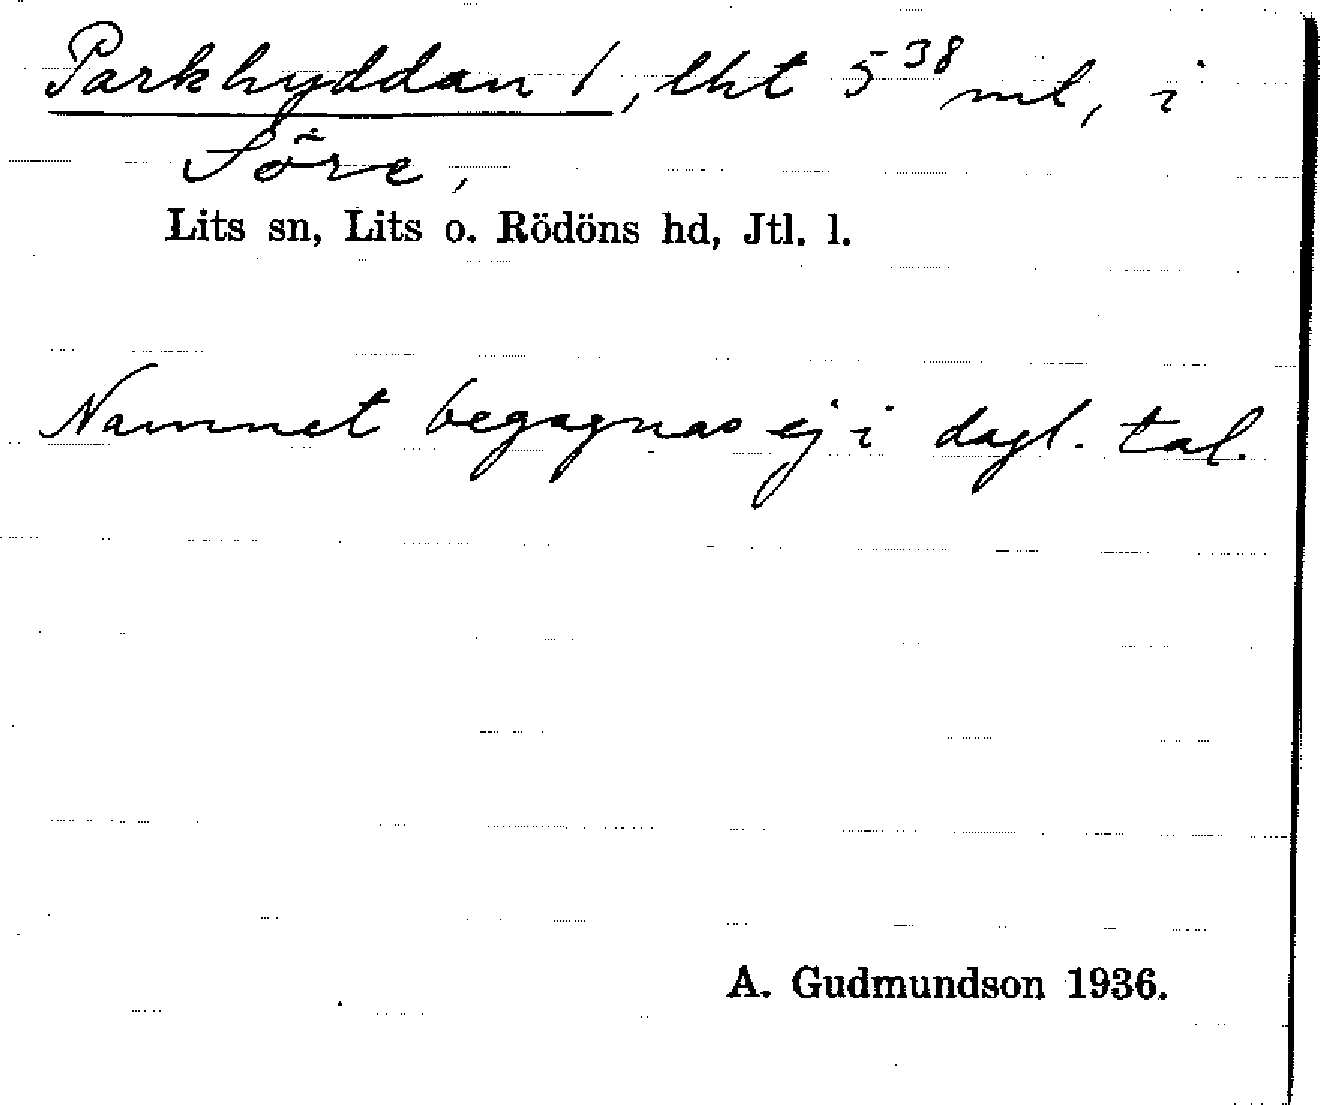 Parkhyddan 1, lht 5³⁸ mt, i
Söre,
Lits sn, Lits o. Rödöns hd, Jtl. l.
Namnet begagnas ej i dagl. tal.
A. Gudmundson 1936.